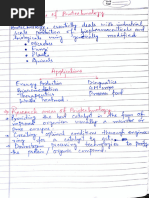 of Biotechnology
Biotechnology essentially deals with industrial
scale production of biopharmaceuticals and
biologicals using genetically modified
• Microbes
• Fungi
• Plants
• Animals
Applications
Energy Production
Agriculture
Therapeutics
Waste treatment
Diagnostics
GM crops
Processed food
Research areas of Biotechnology
Providing the best catalyst in the form of
improved organism usually a microbe or
pure enzyme.
Creating optimal conditions through engineering
for a catalyst to act.
Downstream processing technologies to purify
the protein / organic compound.